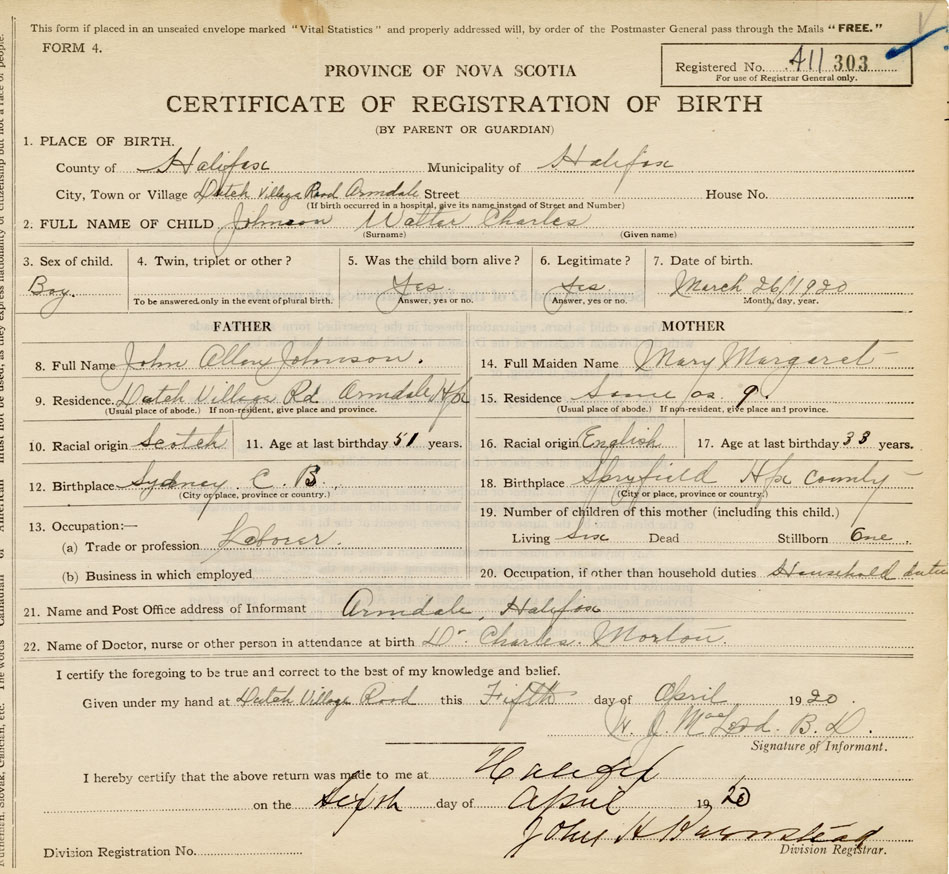 This form if placed in an unsealed envelope marked "Vital Statistics" and properly addressed will, by order of the Postmaster General pass through the Mails "FREE."
FORM 4.
Registered No. A11 303
For use of Registrar General only.
PROVINCE OF NOVA SCOTIA
CERTIFICATE OF REGISTRATION OF BIRTH
(BY PARENT OR GUARDIAN)
1. PLACE OF BIRTH.
County of Halifax Municipality of Halifax
City, Town or Village Dutch Village Road Armdale Street House No.
(If birth occurred in a hospital, give its name instead of Street and Number)
2. FULL NAME OF CHILD Johnson Walter Charles
(Surname) (Given name)
3. Sex of child. 4. Twin, triplet or other? 5. Was the child born alive? 6. Legitimate? 7. Date of birth.
Boy. Yes. Yes March 26/1920
To be answered only in the event of plural birth. Answer, yes or no. Answer, yes or no. Month, day, year.
FATHER MOTHER
8. Full Name John Allan Johnson. 14. Full Maiden Name Mary Margaret
9. Residence. Dutch Village Rd Armdale Hfx 15. Residence Same as 9.
(Usual place of abode.) If non-resident, give place and province. (Usual place of abode.) If non-resident, give place and province.
10. Racial origin Scotch 11. Age at last birthday 51 years. 16. Racial origin English 17. Age at last birthday 33 years.
12. Birthplace Sydney C. B. 18. Birthplace Spryfield Hfx County
(City or place, province or country.) (City or place, province or country.)
13. Occupation:— 19. Number of children of this mother (including this child.)
(a) Trade or profession Laborer. Living Six Dead Stillborn One.
(b) Business in which employed 20. Occupation, if other than household duties Household duties
21. Name and Post Office address of Informant Armdale, Halifax
22. Name of Doctor, nurse or other person in attendance at birth Dr. Charles Morton.
I certify the foregoing to be true and correct to the best of my knowledge and belief.
Given under my hand at Dutch Village Road this Fifth day of April 1920.
W. J. MacLeod. B. D.
Signature of Informant.
I hereby certify that the above return was made to me at Halifax
on the sixth day of April 1920
John H Barnstead
Division Registration No. Division Registrar.